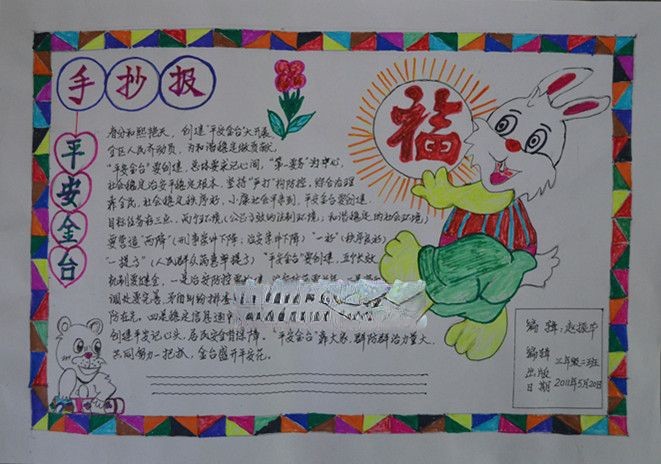 手抄报
平安金台
福
春分和熙艳天，创建“平安金台”大开展。
全区人民齐动员，为和谐稳定做贡献。
“平安金台”要创建，总体要求记心间，“第一要务”为中心，
社会稳定治安平稳定根本，坚持“严打”构防控，综合治理
靠全民，社会稳定秩序好，小康社会早来到，平安金台要创建，
目标任务有三点，两个环境（公正高效的法制环境，和谐稳定的社会环境）
要营造“两降”（刑事案件下降；治安案件下降）“一好”（秩序良好）
一提高”（人民群众满意率提高）“平安金台”要创建，五个长效
机制要健全，一是治安防控要
调处要完善，矛盾纠纷排查
防在先，四是稳定信息
创建平安记心头，居民安全有保障。“平安金台”靠大家，群防群治力量大，
共同努力一把抓，金台盛开平安花。
编辑：赵振华
编辑 三年级二班
出版
日期 2011年5月20日